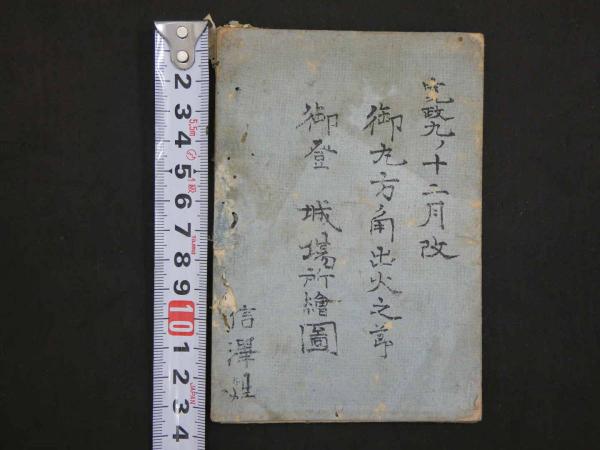 寛政九ノ十二月改
御丸方角出火之節
御登 城場所繪圖
信澤姓
2 3 4 5 6 7 8 9 10 1 2 3 4
5.5m
1級
JAPAN